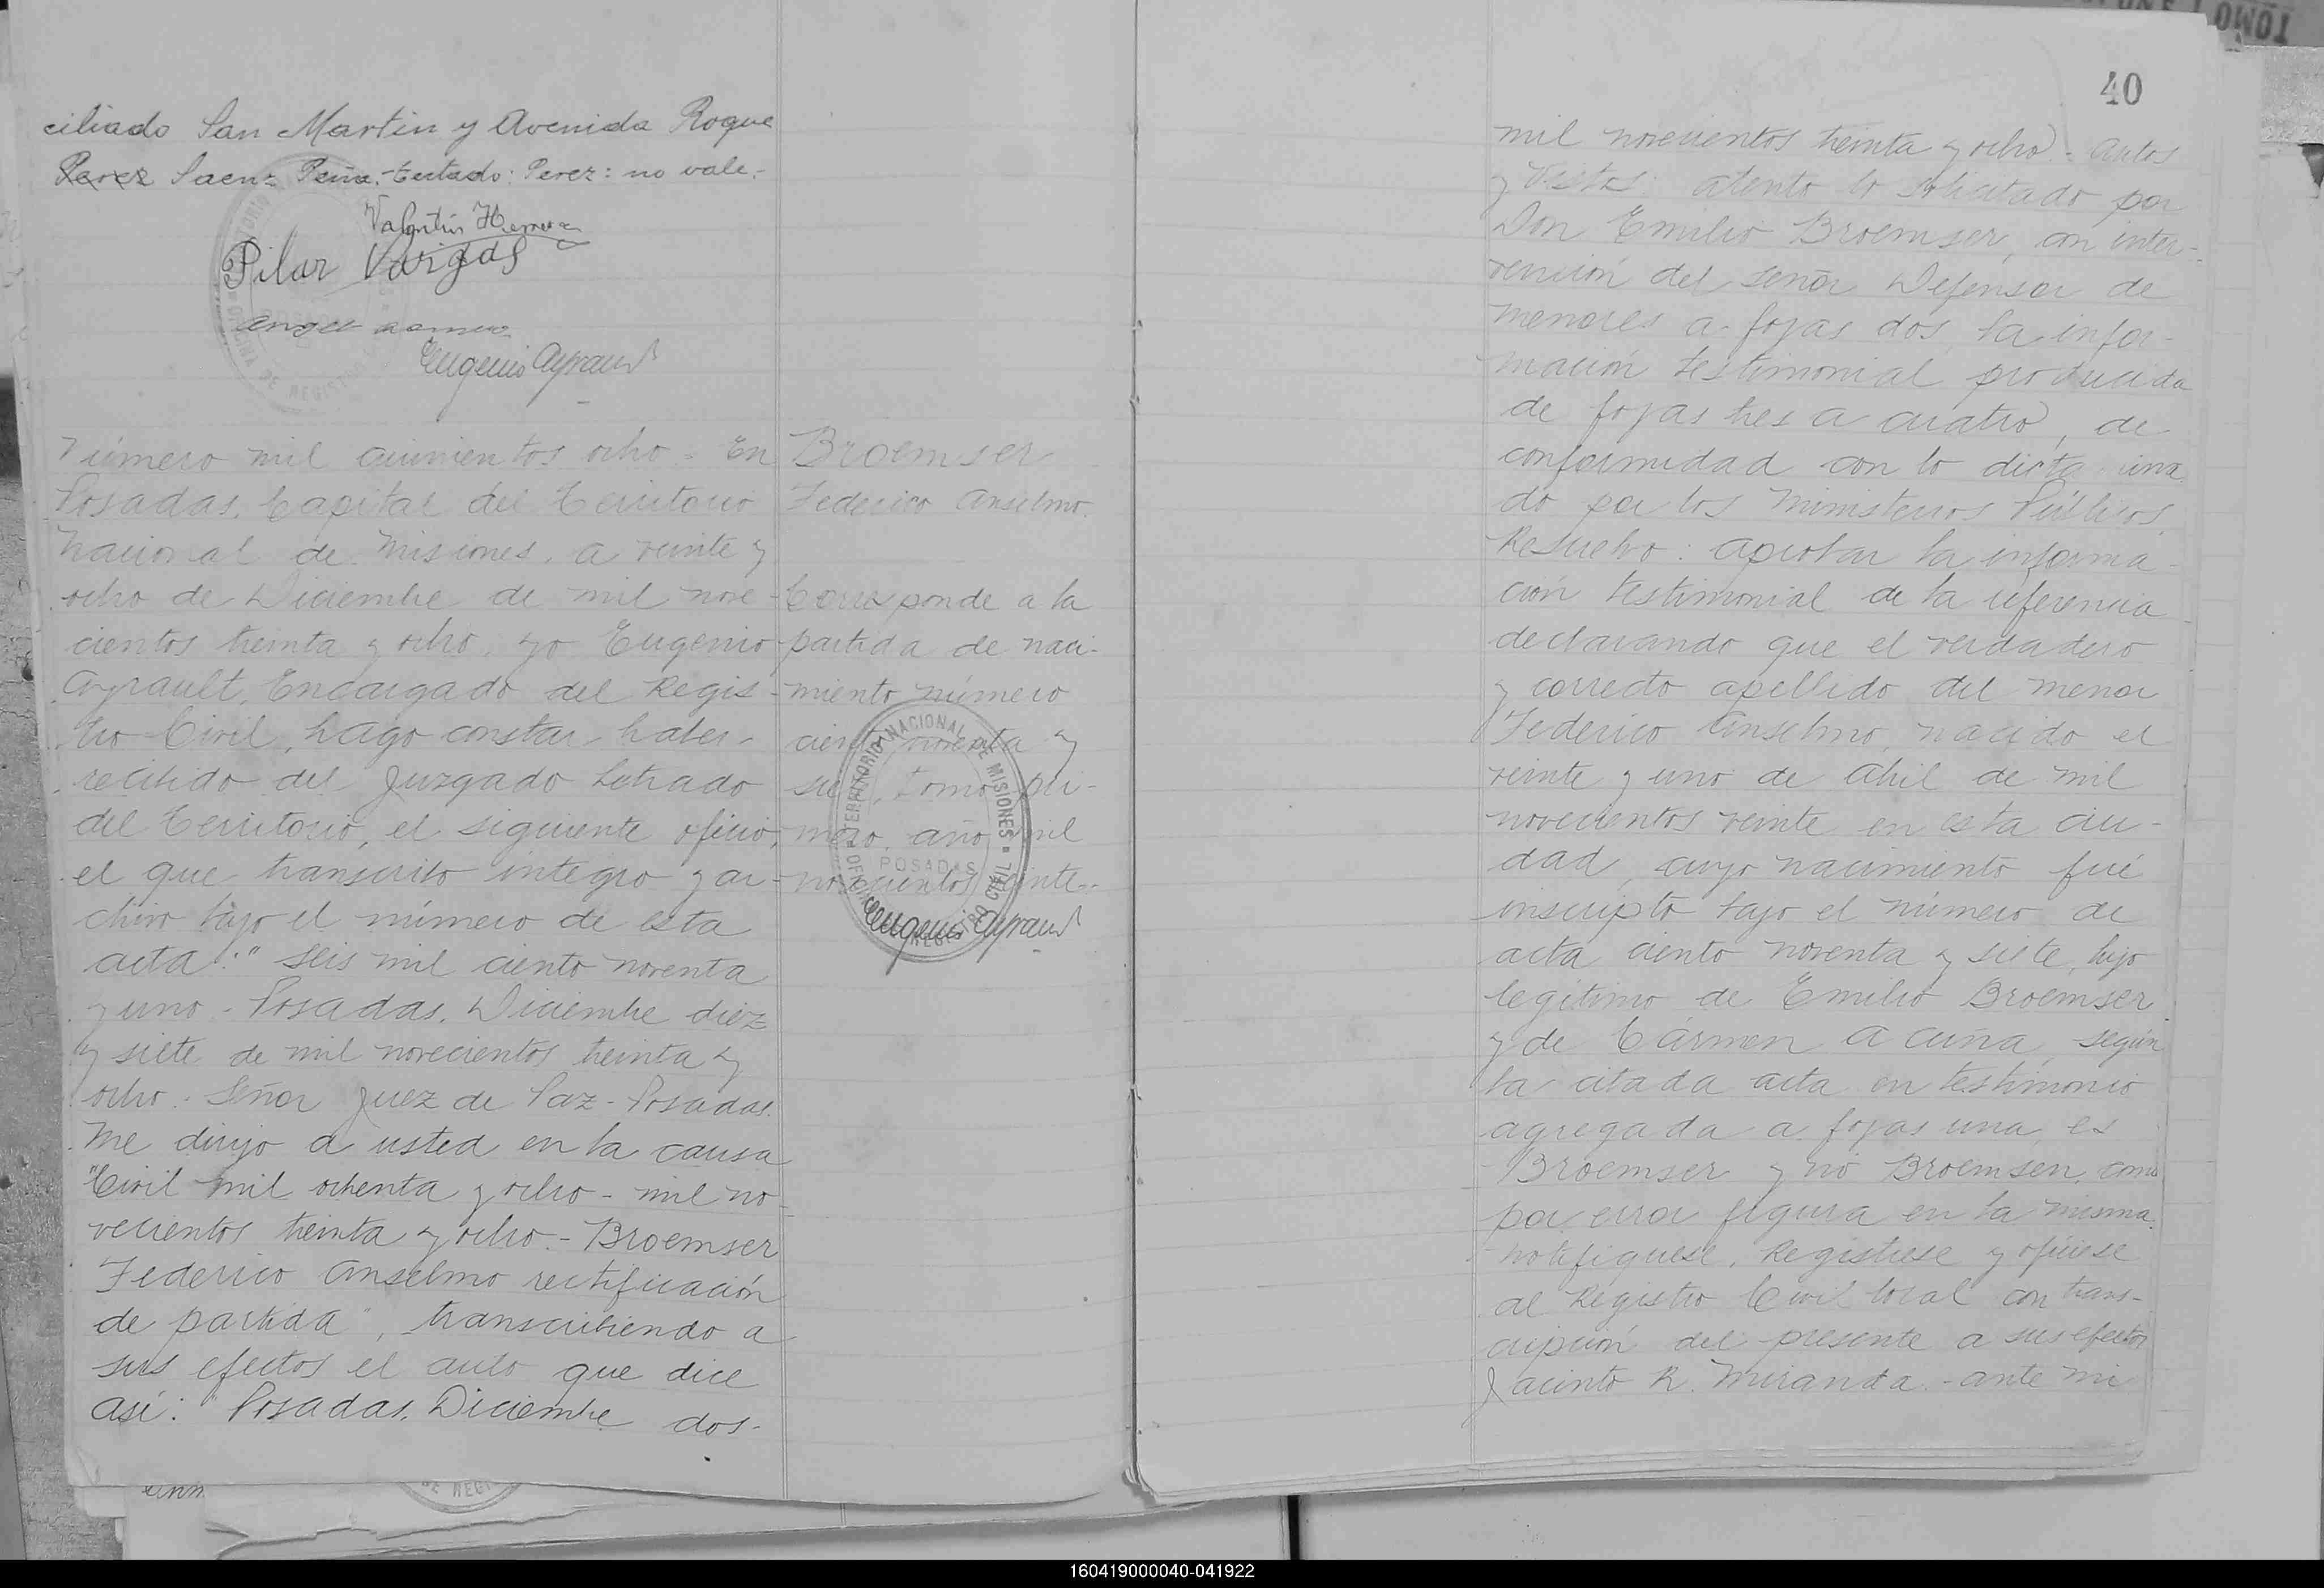 ciliado San Martin y Avenida Roque
Perez Saenz Peña.-testado: Perez: no vale.-
Valentin Herrera
Pilar Vargas
Eugenio Ayrault
Número mil quinientos ocho - En
Posadas, Capital del Territorio
Nacional de Misiones, a veinte y
ocho de Diciembre de mil nove-
cientos treinta y ocho, yo Eugenio
Ayrault, Encargado del Regis-
tro Civil, hago constar haber
recibido del Juzgado Letrado
del Territorio, el siguiente oficio,
el que transcribo integro y ar-
chivo bajo el número de esta
acta: " Seis mil ciento noventa
y uno - Posadas, Diciembre diez
y siete de mil novecientos treinta y
ocho - Señor Juez de Paz - Posadas.
Me dirijo a usted en la causa
"Civil mil ochenta y ocho - mil no-
vecientos treinta y ocho - Broemser
Federico Anselmo rectificación
de partida", transcribiendo a
sus efectos el auto que dice
así: "Posadas, Diciembre dos-
Broemser
Federico Anselmo.
Corresponde a la
partida de naci-
miento número
ciento noventa y
tomo pri-
mero, año mil
novecientos veinte.-
Eugenio Ayrault
OFICINA DE REGISTRO CIVIL
TERRITORIO NACIONAL DE MISIONES
POSADAS
40
mil novecientos treinta y ocho - Autos
y Vistos: atento lo solicitado por
Don Emilio Broemser, con inter-
vención del señor Defensor de
Menores a fojas dos, la infor-
mación testimonial producida
de fojas tres a cuatro, de
conformidad con lo dictamina
do por los Ministerios Públicos
Resuelvo: aprobar la informa-
ción testimonial de la referencia
declarando que el verdadero
y correcto apellido del menor
Federico Anselmo, nacido el
veinte y uno de Abril de mil
novecientos veinte en esta ciu-
dad, cuyo nacimiento fué
inscripto bajo el número de
acta ciento noventa y siete, hijo
legítimo de Emilio Broemser
y de Cármen Acuña, según
la citada acta en testimonio
agregada a fojas una, es
Broemser y no Broemsen, como
por error figura en la misma.
Notifiquese, Registrese y ofíciese
al Registro Civil local con trans-
cripción del presente a sus efectos
Jacinto R. Miranda - ante mi
DE REGI
TOMO I
160419000040-041922